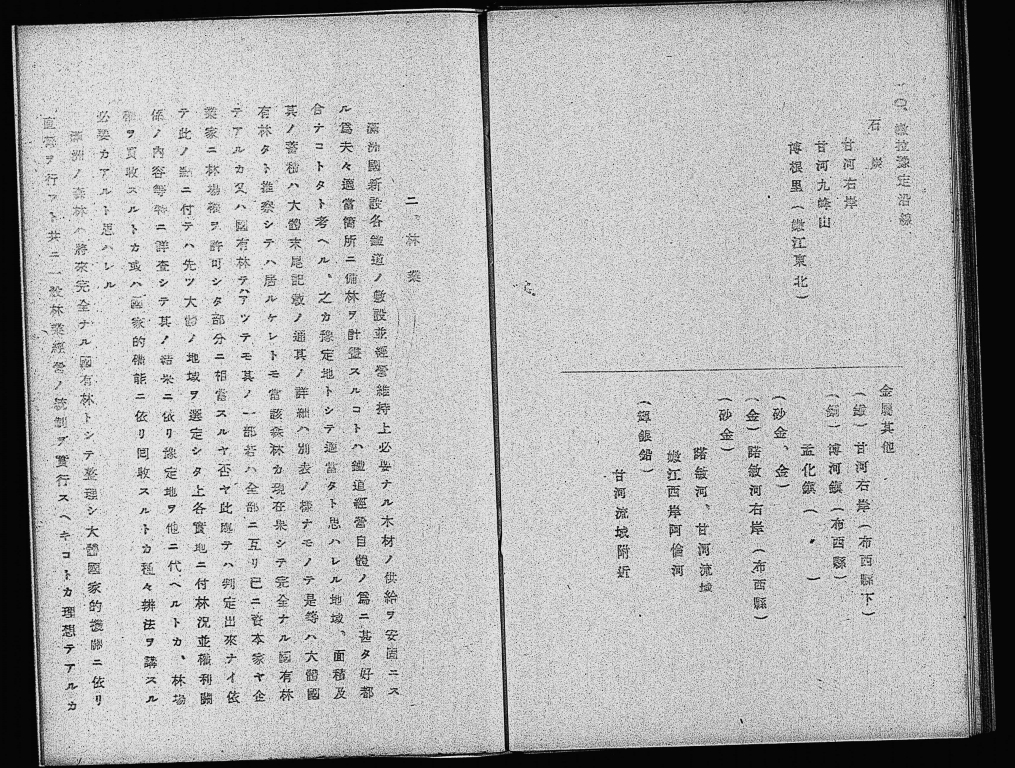 一〇、嫩拉豫定沿線
石炭
甘河右岸
甘河九峰山
博根里(嫩江東北)
金屬其他
(鐵)甘河右岸(布西縣下)
(鐵)博河鎭(布西縣)
孟化鎭(〃)
(砂金、金)
(金)諾敏河右岸(布西縣)
(砂金)
諾敏河、甘河流域
嫩江西岸阿倫河
(銀鉛)
甘河流域附近
二、林業
滿洲國新設各鐵道ノ敷設並經營維持上必要ナル木材ノ供給ヲ安固ニス
ル爲夫々適當箇所ニ備林ヲ計畫スルコトハ鐵道經營自體ノ爲ニ甚タ好都
合ナコトタト考ヘル、之カ豫定地トシテ適當タト思ハレル地域、面積及
其ノ蓄積ハ大體末尾記載ノ通其ノ詳細ハ別表ノ樣ナモノテ是等ハ大體國
有林タト推察シテハ居ルケレトモ當該森林カ現在果シテ完全ナル國有林
テアルカ又ハ國有林テハアツテモ其ノ一部若ハ全部ニ亙リ已ニ資本家ヤ企
業家ニ林場權ヲ許可シタ部分ニ相當スルヤ否ヤ此處テハ判定出來ナイ依
テ此ノ點ニ付テハ先ツ大體ノ地域ヲ選定シタ上各實地ニ付林況並權利關
係ノ內容等特ニ詳査シテ其ノ結果ニ依リ豫定地ヲ他ニ代ヘルトカ、林場
權ヲ買收スルトカ或ハ國家的機能ニ依リ回收スルトカ種々辨法ヲ講スル
必要カアルト思ハレル
滿洲ノ森林ハ將來完全ナル國有林トシテ整理シ大體國家的機關ニ依リ
直營ヲ行フト共ニ一般林業經營ノ統制ヲ實行スヘキコトカ理想テアルカ